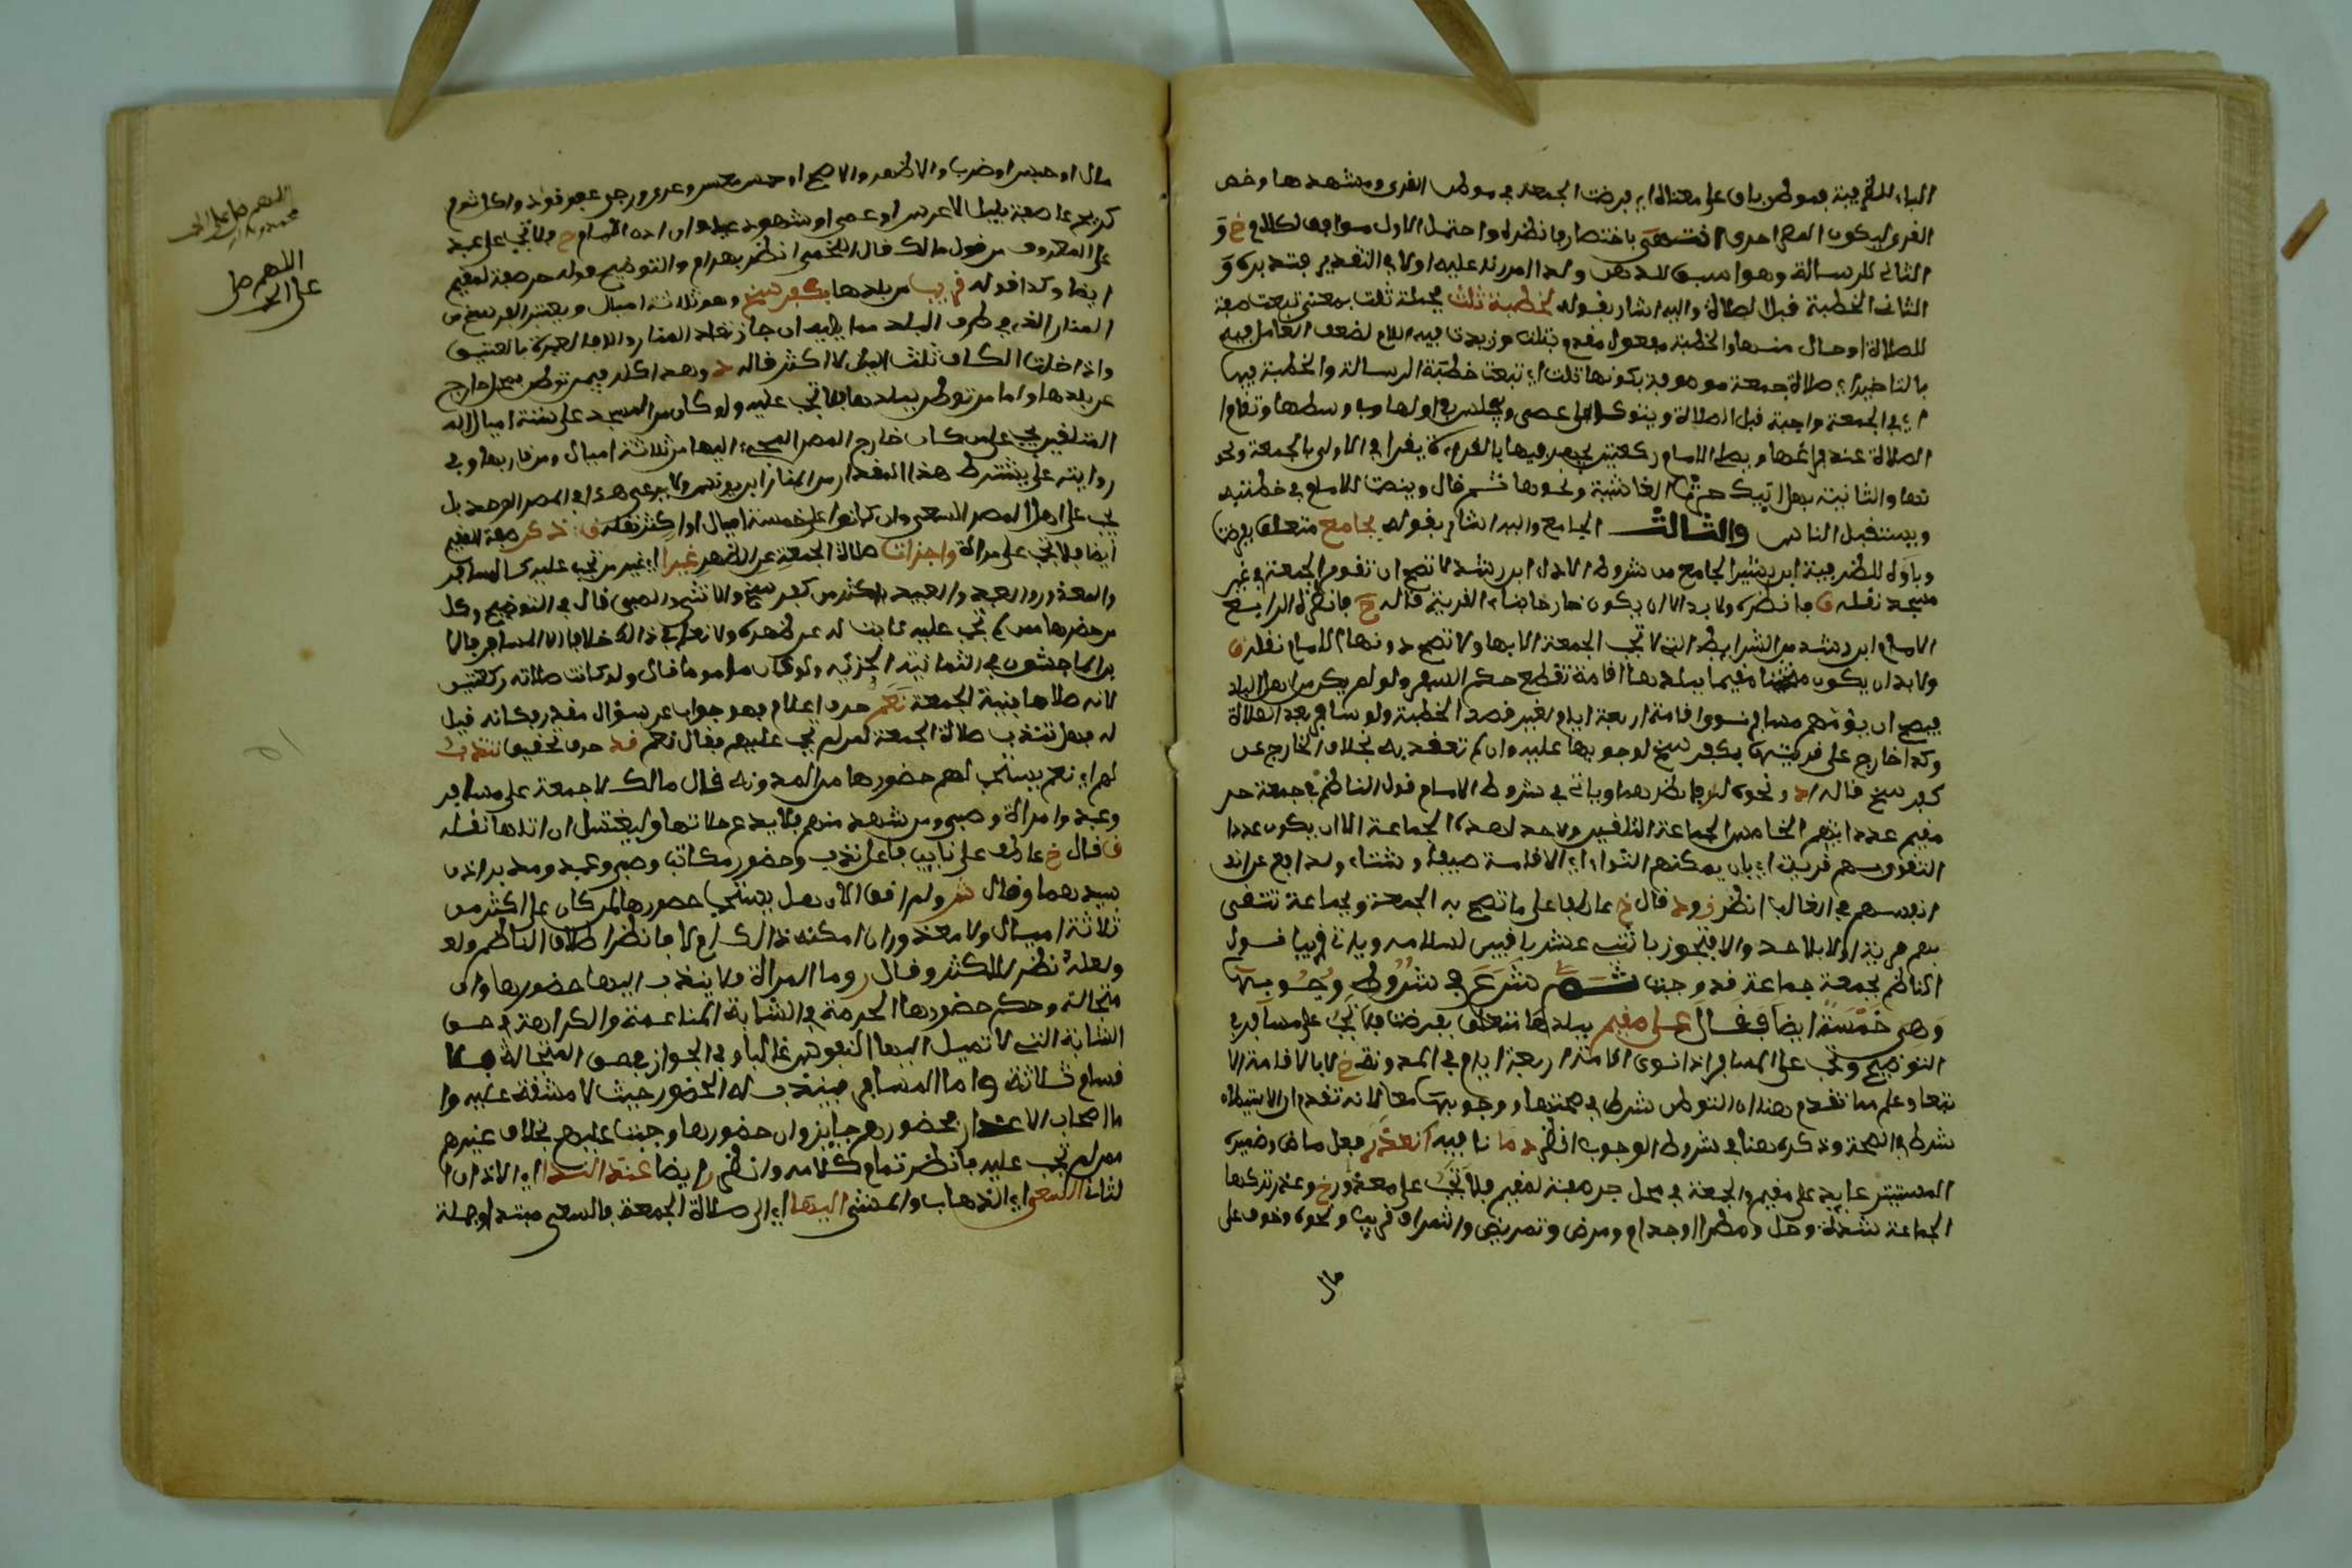 الباء للظرفية بموطن باق على معناه اي فرضت الجمعة في موطن القرى ومشهدها وخص
القرى ليكون المصر احرى انتهى باختصار فانظره واحتمل الاول موافق لكلام خ و
الثاني للرسالة وهو اسبق للذهن ولذا اقتدير
الثاني الخطبة قبل الصلاة واليه اشار بقوله لخطبة تلت بجملة تلت بمعنى تبعت صفة
للصلاة او حال منها والخطبة مفعول مقدم بتلت وزيدت فيه اللام لضعف العامل فيه
بالتاخير اي صلاة جمعة موصوفة بكونها تلت اي تبعت خطبة الرسالة والخطبة فيها
اي في الجمعة واجبة قبل الصلاة ويتوكا على عصى ويجلس في اولها وفي وسطها وتقام
الصلاة عند فراغها ويصلي الامام ركعتين يجهر فيها بالقراءة يقرا في الاولى بالجمعة ونحو
تها والثانية بهل اتيك حديث الغاشية ونحوها ثم قال وينصت للامام في خطبته
ويستقبل الناس والثالث الجامع واليه اشار بقوله بجامع متعلق بفرضت
وباؤه للظرفية ابن بشير الجامع من شروط الاداء ابن رشد لا تصح ان تقوم الجمعة في غير
مسجد نقله ق فانظره ولا بد الا ان يكون خارجا بناء القرية قاله ح فانظره الرابع
الامام ابن رشد من الشرايط التي لا تجب الجمعة الا بها ولا تصح دونها الامام نقله ق
ولا بد ان يكون مقيما ببلدها اقامة تقطع حكم السفر ولو لم يكن من اهل البلد
فيصح ان يؤمهم مسافر نوى اقامة اربعة ايام لغير قصد الخطبة ولو سافر بعد الصلاة
وكذا خارج على قريتها بكفرسخ لوجوبها عليه وان لم تعقد به بخلاف الخارج عن
كفرسخ قاله د ونحوه لز فانظرهما وياتي في شروط الامام قول الناظم في جمعة حر
مقيم عددا انتهى الخامس الجماعة التلقين ولا حد لهذه الجماعة الا ان يكون عددا
التقوى بهم قرية اي بان يمكنهم الثواء اي الاقامة صيفا وشتاء والدفع عن
انفسهم في الغالب انظر ز ود قال خ عاطفا على ما تصح به الجمعة وبجماعة تتقرى
بهم قرية اولا بلا حد والا فتجوز باثني عشر باقين لسلامه وياتي قريبا قول
الناظم بجمعة جماعة قد وجبت ثم شرع في شروط وجوبها
وهي خمسة ايضا فقال على مقيم ببلدها متعلق بفرضت فلا تجب على مسافر في
التوضيح وتجب على المسافر اذا نوى اقامة اربعة ايام في المدونة خ لا بالاقامة الا
تبعا وعلم مما تقدم هنا ان التوطن شرط في صحتها ووجوبها معا لانه تقدم ان الاستيطان
شرط في الصحة وذكره هنا في شروط الوجوب انظر د ما نافيه انعذر فعل ماض وضميره
المستتر عايد على مقيم والجملة في محل جر صفة لمقيم فلا تجب على معذور خ وعذر تركها
الجماعة شدة وحل ومطر او جذام ومرض وتمريض واشراف قريب ونحوه وخوف على
مال
مال او حبس او ضرب والاظهر والاصح او حبس معسر وعرى ورجى عفو قود واكل ثوم
كريح عاصفة بليل لا عرس او عمى او شهود عيد وان اذن الامام ح فلا تجب على عبد
على المعروف من قول مالك قال اللخمي انظر بهرام والتوضيح قوله حر صفة لمقيم
ايضا وكذا قوله قريب من بلدها بكفرسخ وهو ثلاثة اميال ويعتبر الفرسخ من
المنار الذي في طرف البلد مما يليه ان جاز تعدد المنار والا فالعبرة بالعتيق
واذا خلت الكاف ثلث الميل لا اكثر قاله د وهذا كله فيمن توطن بمحل خارج
عن بلدها واما من توطن ببلدها فتجب عليه ولو كان من المسجد على ستة اميال اله
التلقين يجب على من كان خارج المصر المجيء اليها من ثلاثة اميال ومن قاربها وفي
رواية علي يشترط هذا المقدار من المنار ابن يونس ولا يرعى هذا في المصر الوحد بل
يجب على اهل المصر السعي وان كانوا على خمسة اميال او اكثر نقله ق ذكر صفة المقيم
ايضا فلا تجب على مراة واجزات صلاة الجمعة عن الظهر غيرا اي غير من تجب عليه كالمسافر
والمعذور والعبد والبعيد باكثر من كفرسخ والانثى والصبي قال في التوضيح وكل
من حضرها ممن لم تجب عليه نابت له عن ظهره ولا نعلم في ذالك خلافا الا المسافر فالا
بن الماجشون في الثمانية لا تجزئه ولو كان ماموما قال ولو كانت صلاته ركعتين
لانه صلاها بنية الجمعة نعم حرف اعلام فهو جواب عن سؤال مقدر وكانه قيل
له وهل تندب صلاة الجمعة لمن لم تجب عليهم فقال نعم قد حرف تحقيق تندب
لهم اي نعم يستحب لهم حضورها من المدونة قال مالك لا جمعة على مسافر
وعبد وامراة وصبي ومن شهد منهم فلا يدع صلاتها وليغتسل ان اتاها نقله
ق قال خ عاطفا على نايب فاعل ندب وحضور مكاتب وصبي وعبد ومدبر اذن
سيدهما وقال شر ولم اقف الان هل يستحب حضورها لمن كان على اكثر من
ثلاثة اميال ولا معذور ان امكنه ذالك ام لا فانظر اطلاق الناظم ولعـ
ولعله نظر للاكثر وقال ر وما المراة فلا يندب اليها حضورها وان
متجالة وحكم حضورها الحرمة في الشابة الناعمة والكراهة في حسن
الشابة التي لا تميل اليها النفوس غالبا وفي الجواز في حق المتجالة فالا
قسام ثلاثة واما المسافر فيندب له الحضور حيث لا مشقة عليه وا
ما اصحاب الاعذار فحضورهم جايز وان حضورها وجبت عليهم بخلاف غيرهم
ممن لم تجب عليه فانظر تمام كلامه وانظر ايضا عند الندا اي الاذان ا
لثاني السعي اي الذهاب والمشي اليها اي الى صلاة الجمعة فالسعي مبتدا وجملة
اللهم صل على
محمد
اللهم صل
على